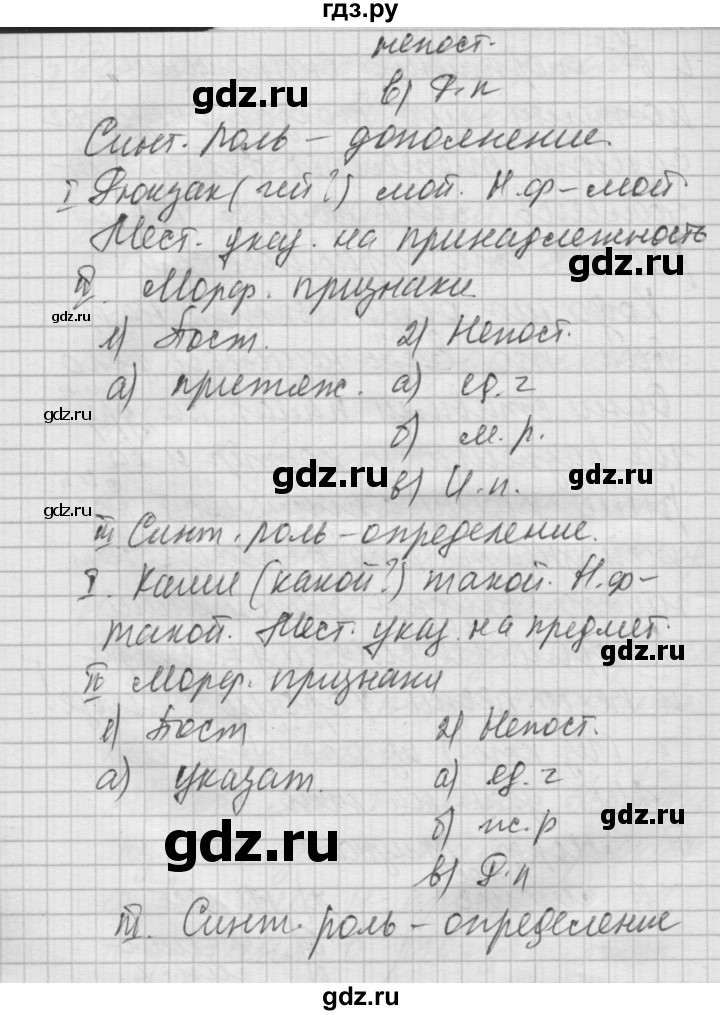 гдз.ру
непост.
gdz.ru
в) Р.п
Синт. роль – дополнение.
I Рюкзак (чей?) мой. Н.ф – мой
Мест. указ. на принадлежность
gdz.ru
II. Морф. признаки
gdz.ru
1) Пост. 2) Непост.
а) притяж. а) ед. ч
gdz.ru
б) м. р.
gdz.ru gdz.ru
в) И. п.
gdz.ru
III Синт. роль – определение.
I. Каши (какой?) такой. Н.ф –
такой. Мест. указ. на предмет.
gdz.ru
II Морф. признаки
1) Пост 2) Непост.
а) указат. а) ед. ч
gdz.ru
б) ж. р
gdz.ru
в) Р.п
III. Синт. роль – определение
gdz.ru